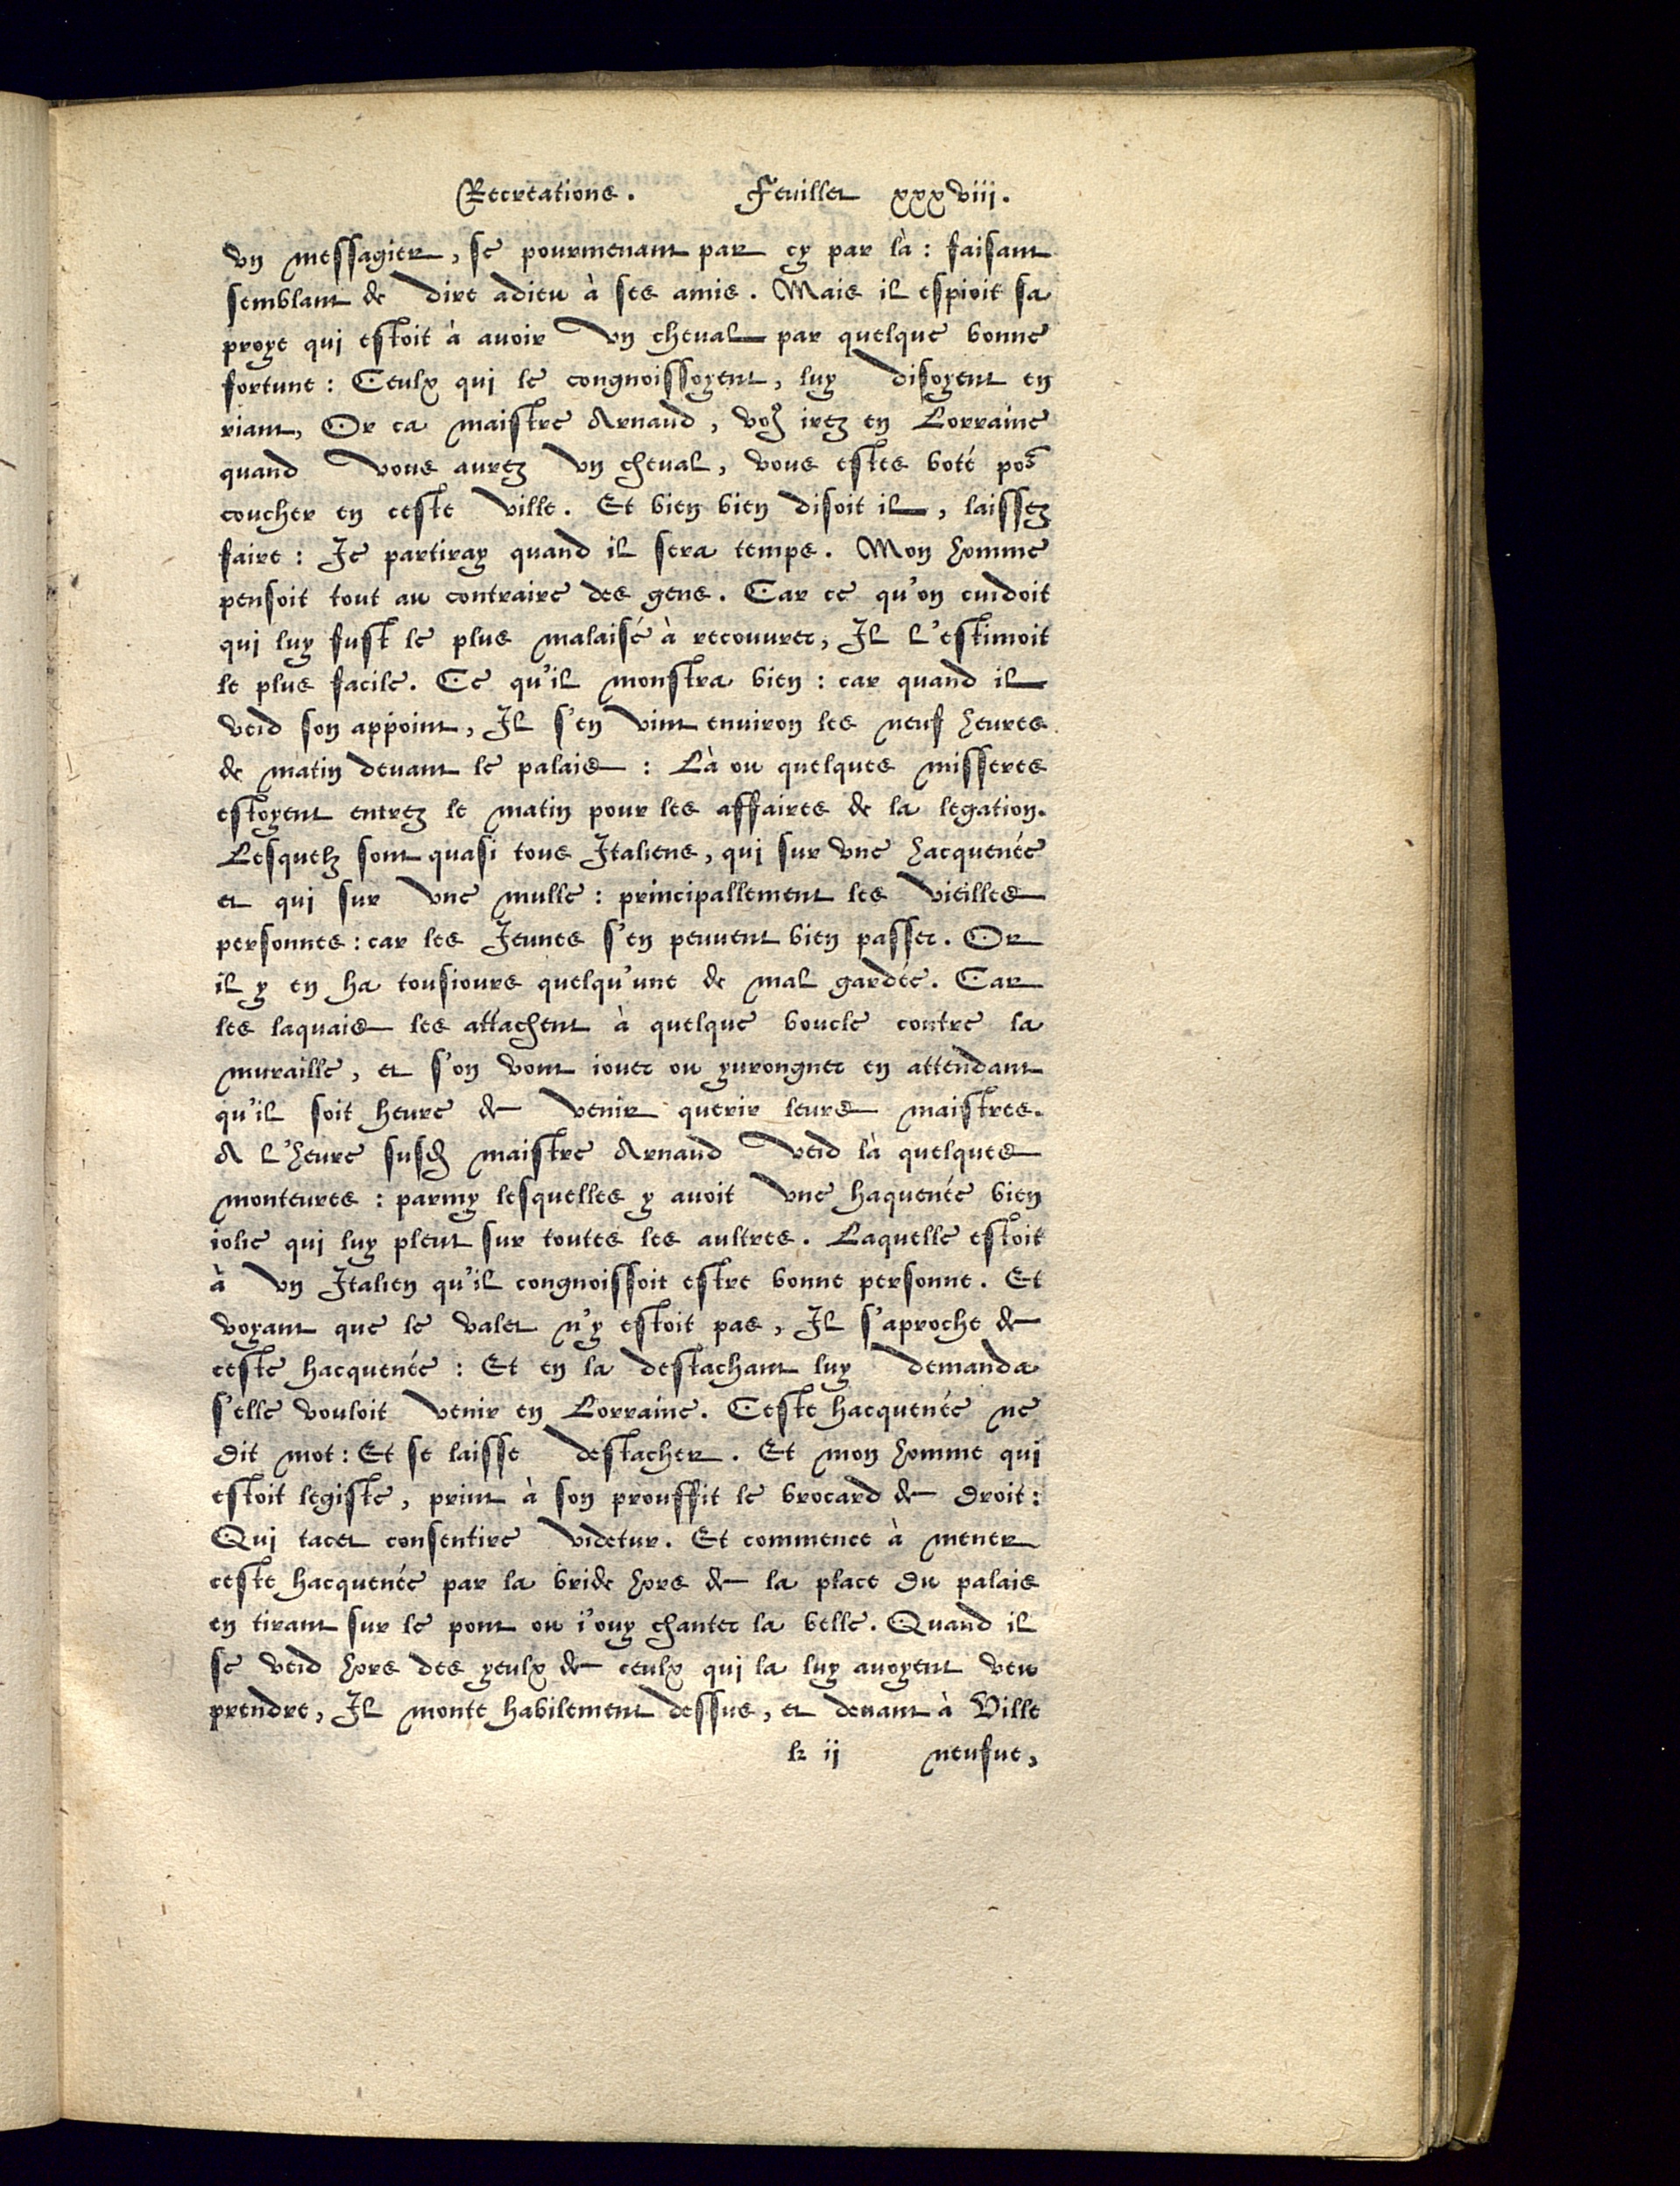 Recreations. Feuillet xxxviij.
vn messagier, se pourmenant par cy par là : faisant
semblant de dire adieu à ses amis. Mais il espioit sa
proye qui estoit à auoir vn cheual par quelque bonne
fortune : Ceulx qui le congnoissoyent, luy disoyent en
riant, Or ca maistre Arnaud, voꝰ irez en Lorraine
quand vous aurez vn cheual, vous estes boté por̃
coucher en ceste ville. Et bien bien disoit il, laissez
faire : Je partiray quand il sera temps. Mon homme
pensoit tout au contraire des gens. Car ce qu'on cuidoit
qui luy fust le plus malaisé à recouurer, Il l'estimoit
le plus facile. Ce qu'il monstra bien : car quand il
veid son appoint, Il s'en vint enuiron les neuf heures
de matin deuant le palais : Là ou quelques misseres
estoyent entrez le matin pour les affaires de la legation.
Lesquelz sont quasi tous Italiens, qui sur vne hacquenée
et qui sur vne mulle : principallement les vieilles
personnes : car les Jeunes s'en peuuent bien passer. Or
il y en ha tousiours quelqu'une de mal gardée. Car
les laquais les attachent à quelque boucle contre la
muraille, et s'on vont iouer ou yurongner en attendant
qu'il soit heure de venir querir leurs maistres.
A l'heure susdꝭ maistre Arnaud veid là quelques
monteures : parmy lesquelles y auoit vne haquenée bien
iolie qui luy pleut sur toutes les aultres. Laquelle estoit
à vn Italien qu'il congnoissoit estre bonne personne. Et
voyant que le valet n'y estoit pas, Il s'aproche de
ceste hacquenée : Et en la destachant luy demanda
s'elle vouloit venir en Lorraine. Ceste hacquenée ne
dit mot : Et se laisse destacher. Et mon homme qui
estoit legiste, print à son prouffit le brocard de droit :
Qui tacet consentire videtur. Et commence à mener
ceste hacquenée par la bride hors de la place du palais
en tirant sur le pont ou i'ouy chanter la belle. Quand il
se veid hors des yeulx de ceulx qui la luy auoyent veu
prendre, Il monte habilement dessus, et deuant à Ville
k ij neufue,